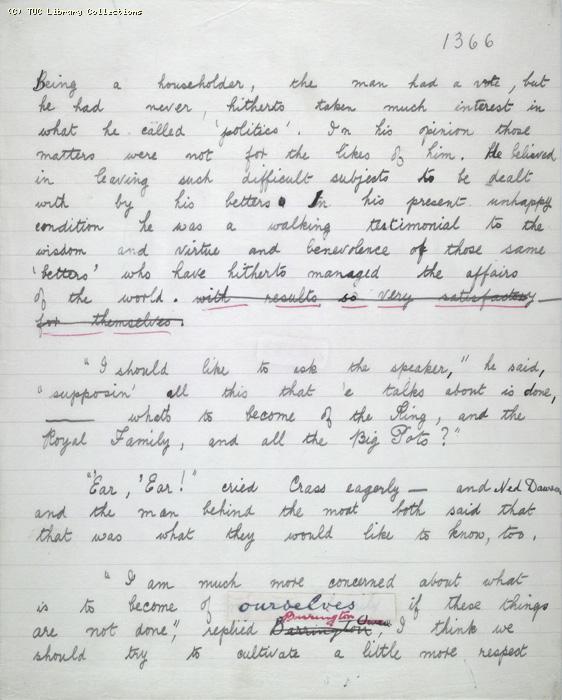 (C) TUC Library Collections
1366
Being a householder, the man had a vote, but
he had never, hitherto taken much interest in
what he called 'politics'. In his opinion those
matters were not for the likes of him. He believed
in leaving such difficult subjects to be dealt
with by his betters. In his present unhappy
condition he was a walking testimonial to the
wisdom and virtue and benevolence of those same
'betters' who have hitherto managed the affairs
of the world. with results so very satisfactory
for themselves.
"I should like to ask the speaker," he said,
"supposin' all this that 'e talks about is done,
what's to become of the King, and the
Royal Family, and all the Big Pots?"
"'Ear, 'Ear!" cried Crass eagerly — and Ned Dawson
and the man behind the moat both said that
that was what they would like to know, too.
"I am much more concerned about what
is to become of ourselves if these things
Barrington
are not done", replied Barrington Owen, I think we
should try to cultivate a little more respect